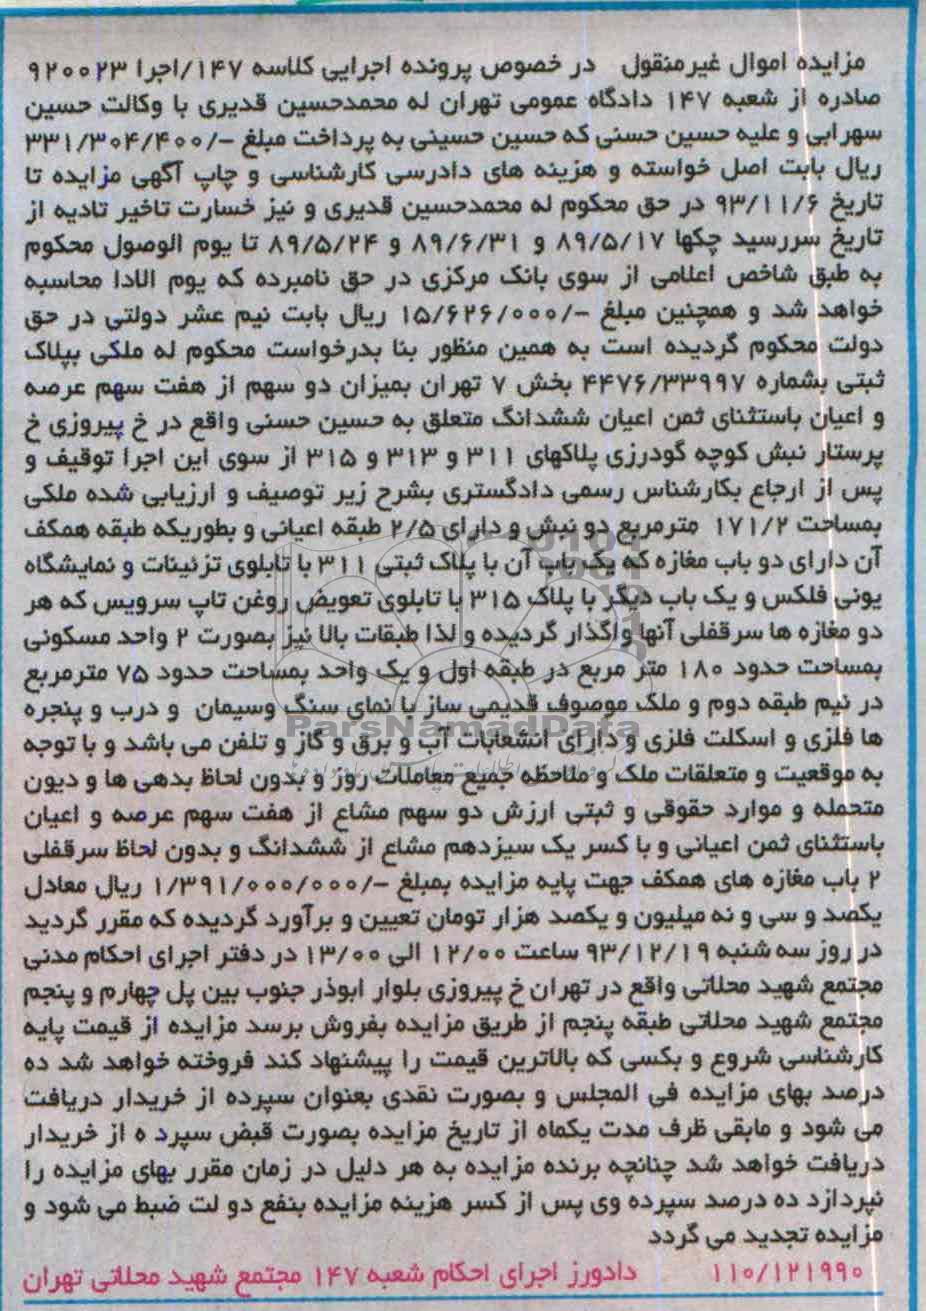 مزایده اموال غیرمنقول در خصوص پرونده اجرایی کلاسه ۱۴۷/اجرا ۹۲۰۰۲۳
صادره از شعبه ۱۴۷ دادگاه عمومی تهران له محمدحسین قدیری با وکالت حسین
سهرابی و علیه حسین حسنی که حسین حسینی به پرداخت مبلغ -/۳۳۱/۳۰۴/۴۰۰
ریال بابت اصل خواسته و هزینه های دادرسی کارشناسی و چاپ آگهی مزایده تا
تاریخ ۹۳/۱۱/۶ در حق محکوم له محمدحسین قدیری و نیز خسارت تاخیر تادیه از
تاریخ سررسید چکها ۸۹/۵/۱۷ و ۸۹/۶/۳۱ و ۸۹/۵/۲۴ تا یوم الوصول محکوم
به طبق شاخص اعلامی از سوی بانک مرکزی در حق نامبرده که یوم الادا محاسبه
خواهد شد و همچنین مبلغ -/۱۵/۶۲۶/۰۰۰ ریال بابت نیم عشر دولتی در حق
دولت محکوم گردیده است به همین منظور بنا بدرخواست محکوم له ملکی بپلاک
ثبتی بشماره ۴۴۷۶/۳۳۹۹۷ بخش ۷ تهران بمیزان دو سهم از هفت سهم عرصه
و اعیان باستثنای ثمن اعیان ششدانگ متعلق به حسین حسنی واقع در خ پیروزی خ
پرستار نبش کوچه گودرزی پلاکهای ۳۱۱ و ۳۱۳ و ۳۱۵ از سوی این اجرا توقیف و
پس از ارجاع بکارشناس رسمی دادگستری بشرح زیر توصیف و ارزیابی شده ملکی
بمساحت ۱۷۱/۲ مترمربع دو نبش و دارای ۲/۵ طبقه اعیانی و بطوریکه طبقه همکف
آن دارای دو باب مغازه که یک باب آن با پلاک ثبتی ۳۱۱ با تابلوی تزئینات و نمایشگاه
یونی فلکس و یک باب دیگر با پلاک ۳۱۵ با تابلوی تعویض روغن تاپ سرویس که هر
دو مغازه ها سرقفلی آنها واگذار گردیده و لذا طبقات بالا نیز بصورت ۲ واحد مسکونی
بمساحت حدود ۱۸۰ متر مربع در طبقه اول و یک واحد بمساحت حدود ۷۵ مترمربع
در نیم طبقه دوم و ملک موصوف قدیمی ساز با نمای سنگ وسیمان و درب و پنجره
ParsNamadData
ها فلزی و اسکلت فلزی و دارای انشعابات آب و برق و گاز و تلفن می باشد و با توجه
به موقعیت و متعلقات ملک و ملاحظه جمیع معاملات روز و بدون لحاظ بدهی ها و دیون
متحمله و موارد حقوقی و ثبتی ارزش دو سهم مشاع از هفت سهم عرصه و اعیان
باستثنای ثمن اعیانی و با کسر یک سیزدهم مشاع از ششدانگ و بدون لحاظ سرقفلی
۲ باب مغازه های همکف جهت پایه مزایده بمبلغ -/۱/۳۹۱/۰۰۰/۰۰۰ ریال معادل
یکصد و سی و نه میلیون و یکصد هزار تومان تعیین و برآورد گردیده که مقرر گردید
در روز سه شنبه ۹۳/۱۲/۱۹ ساعت ۱۲/۰۰ الی ۱۳/۰۰ در دفتر اجرای احکام مدنی
مجتمع شهید محلاتی واقع در تهران خ پیروزی بلوار ابوذر جنوب بین پل چهارم و پنجم
مجتمع شهید محلاتی طبقه پنجم از طریق مزایده بفروش برسد مزایده از قیمت پایه
کارشناسی شروع و بکسی که بالاترین قیمت را پیشنهاد کند فروخته خواهد شد ده
درصد بهای مزایده فی المجلس و بصورت نقدی بعنوان سپرده از خریدار دریافت
می شود و مابقی ظرف مدت یکماه از تاریخ مزایده بصورت قبض سپرد ه از خریدار
دریافت خواهد شد چنانچه برنده مزایده به هر دلیل در زمان مقرر بهای مزایده را
نپردازد ده درصد سپرده وی پس از کسر هزینه مزایده بنفع دو لت ضبط می شود و
مزایده تجدید می گردد
۱۱۰/۱۲۱۹۹۰ دادورز اجرای احکام شعبه ۱۴۷ مجتمع شهید محلاتی تهران